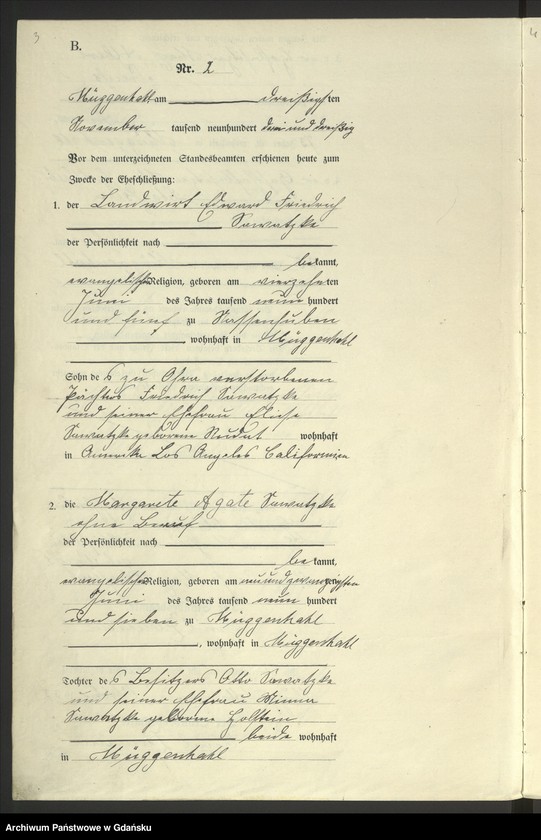 3
B.
Nr. 2
Müggenhall am dreißigsten
November tausend neunhundert drei und dreißig
Vor dem unterzeichneten Standesbeamten erschienen heute zum
Zwecke der Eheschließung:
1. der Landwirt Edward Friedrich
Sawatzke
der Persönlichkeit nach
bekannt,
evangelischer Religion, geboren am vierzehnten
Juni des Jahres tausend neun hundert
und fünf zu
wohnhaft in Müggenhahl
Sohn des zu Ohra verstorbenen
Pächters Friedrich Sawatzke
und seiner Ehefrau Elise
Sawatzke geborene Rudat wohnhaft
in Amerika Los Angeles Californien
2. die Margarete Agate Sawatzke
ohne Beruf
der Persönlichkeit nach
bekannt,
evangelischer Religion, geboren am neunundzwanzigsten
Juni des Jahres tausend neun hundert
und sieben zu Müggenhahl
, wohnhaft in Müggenhahl
Tochter des Besitzers Otto Sawatzke
und seiner Ehefrau Minna
Sawatzke geborene Holstein
beide wohnhaft
in Müggenhahl
Archiwum Państwowe w Gdańsku